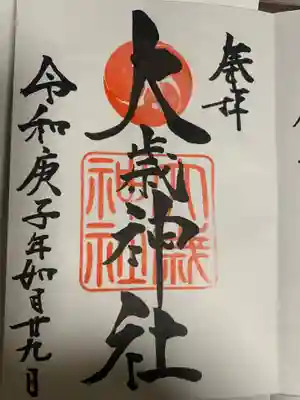 奉拝
大歳神社
大歳神社
令和庚子年如月廿九日